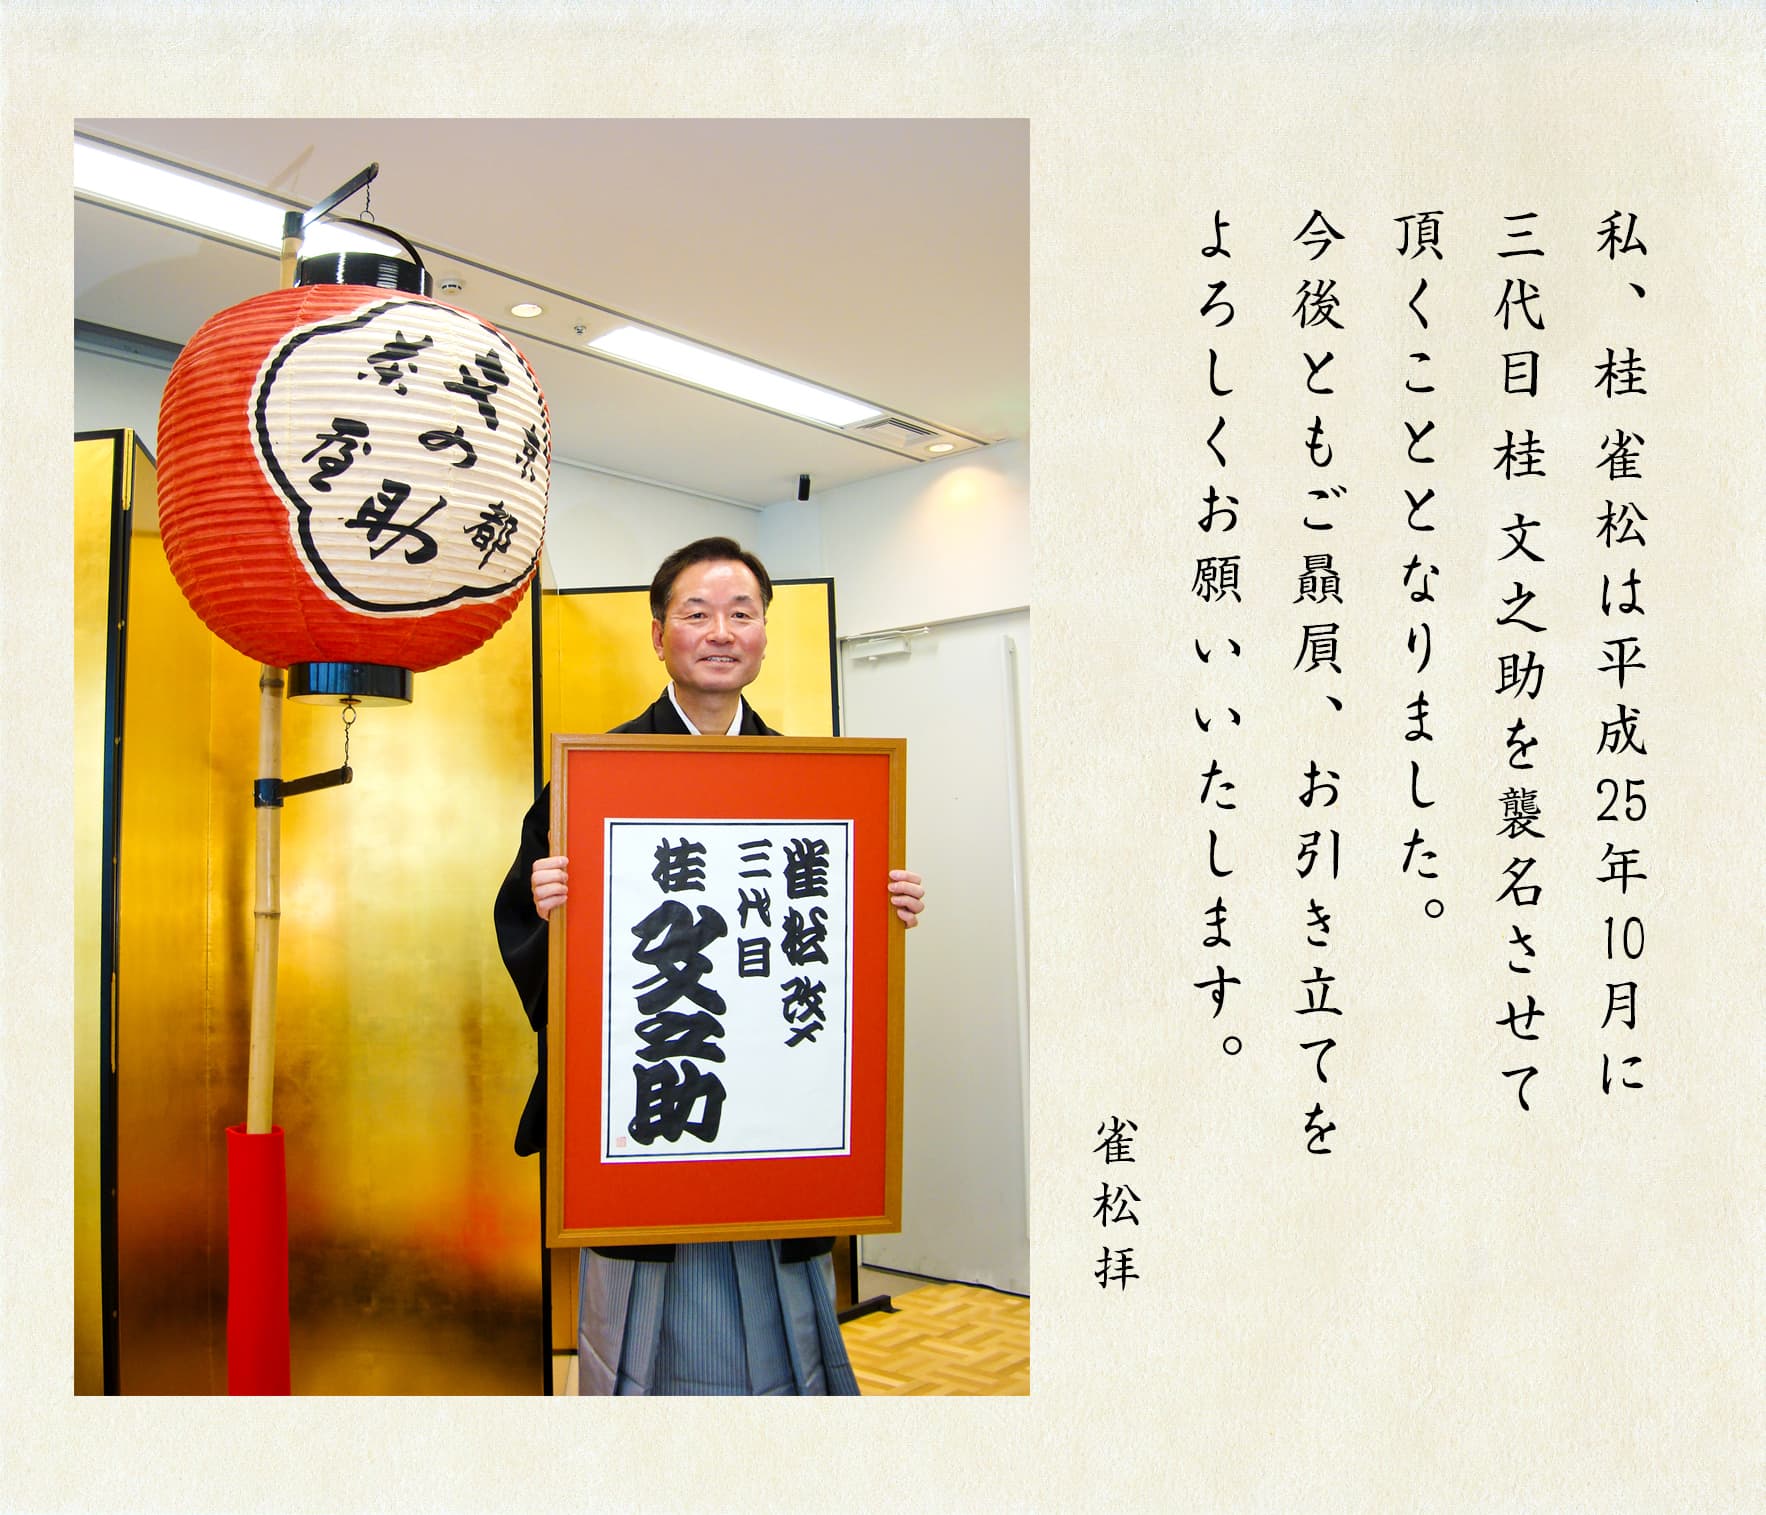 私、桂 雀松は平成25年10月に
三代目 桂 文之助を襲名させて
頂くこととなりました。
今後ともご贔屓、お引き立てを
よろしくお願いいたします。
雀松 拝
京都
文の助
茶屋
雀松改メ
三代目
桂 文之助